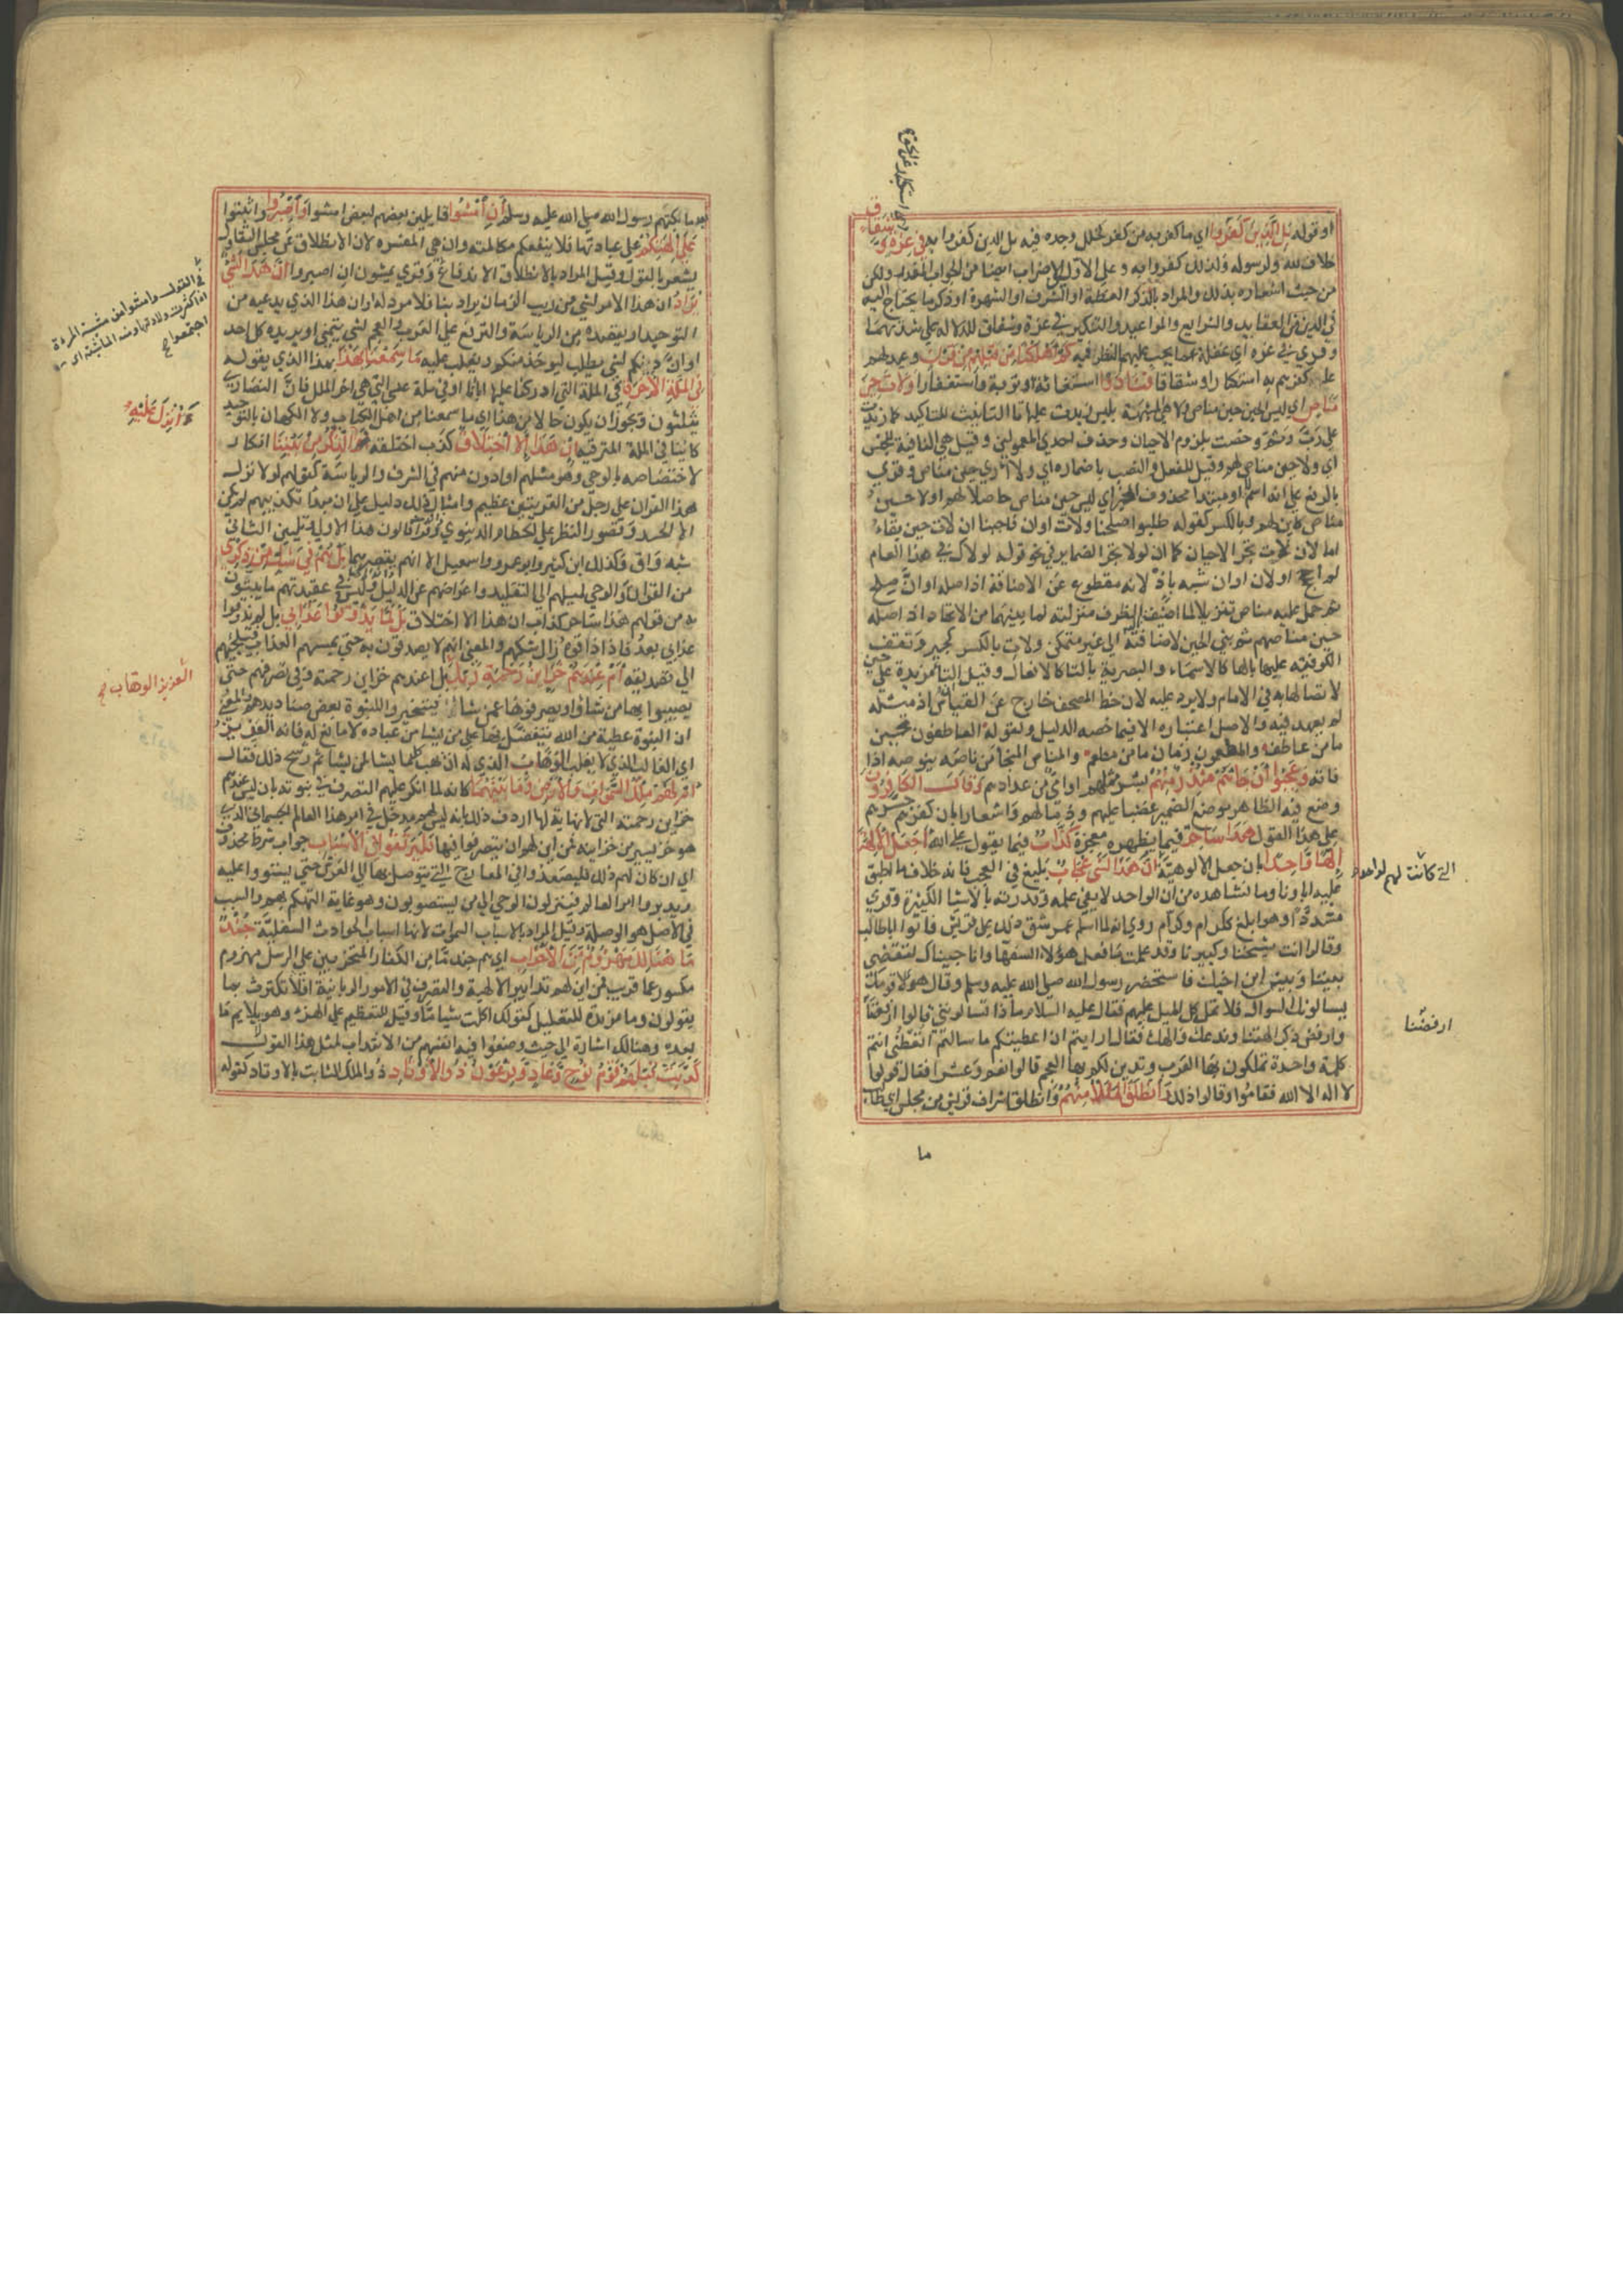 اي استكبار عن الحق
او قوله بَلِ الَّذِينَ كَفَرُوا اي ما كفر به من كفر لخلل وجده فيه بل الذين كفروا به فِي عِزَّةٍ وَشِقَاقٍ
خلاف لله ولرسوله ولذلك كفروا به وعلى الاول الاضراب ايضا من الجواب المقدر ولكن
من حيث اشعاره بذلك والمراد بالذكر العظة او الشرف او الشهرة او ذكر ما يحتاج اليه
في الدين من العقايد والشرايع والمواعيد والتنكير في عزة وشقاق للدلالة على شدتهما
وقري في غره اي غفلة عما يجب عليهم النظر فيه كَمْ أَهْلَكْنَا مِن قَبْلِهِم مِّن قَرْنٍ وعيد لهم
على كفرهم به استكبارا وشقاقا فَنَادَوا استغاثة او توبة واستغفارا وَلَاتَ حِينَ
مَنَاصٍ اي ليس الحين حين مناص ولا هي المشبهة بليس زيدت عليها تا التانيث للتاكيد كما زيدت
على رب وثم وخصت بلزوم الاحيان وحذف احدي المعمولين وقيل هي النافية للجنس
اي ولا حين مناص لهم وقيل للفعل والنصب باضماره اي ولا اري حين مناص وقري
بالرفع على انه اسم لا او مبتدا محذوف الخبر اي ليس حين مناص حاصلا لهم او لا حين
مناص كاين لهم وبالكسر كقوله طلبوا صلحنا ولات اوان فاجبنا ان لات حين بقاء
اما لان لات تجر الاحيان كما ان لولا تجر الضماير في نحو قوله لولاك في هذا العام
لم احج او لان اوان شبه باذ لانه مقطوع عن الاضافة اذ اصله اوان صلح
ثم حمل عليه مناص تنزيلا لما اضيف اليه الظرف منزلته لما بينهما من الاتحاد اذ اصله
حين مناصهم ثم بني الحين لاضافته الى غير متمكن ولات بالكسر كجير وتقف
الكوفية عليها بالها كالاسماء والبصرية بالتا كالافعال وقيل التا مزيدة على حين
لاتصالها به في الامام ولا يرد عليه لان خط المصحف خارج عن القياس اذ مثله
لم يعهد فيه والاصل اعتباره الا فيما خصه الدليل ولقوله العاطفون تحين
ما من عاطف والمطعمون زمان ما من مطعم والمناص المنجا من ناصه ينوصه اذا
فاته وَعَجِبُوا أَن جَاءَهُم مُّنذِرٌ مِّنْهُمْ بشر مثلهم او امي من عدادهم وَقَالَ الْكَافِرُونَ
وضع فيه الظاهر موضع الضمير غضبا عليهم وذما لهم واشعارا بان كفرهم جسرهم
على هذا القول هَذَا سَاحِرٌ فيما يظهره معجزة كَذَّابٌ فيما يقول على الله أَجَعَلَ الْآلِهَةَ
إِلَهًا وَاحِدًا بان جعل الالوهية إِنَّ هَذَا لَشَيْءٌ عُجَابٌ بليغ في العجب فانه خلاف ما اطبق
التي كانت لهم لواحد
عليه اباونا وما نشاهده من ان الواحد لا يفي علمه وقدرته بالاشيا الكثيرة وقري
مشددا وهو ابلغ ككرام وكرام روي انه لما اسلم عمر شق ذلك على قريش فاتوا ابا طالب
وقالوا انت شيخنا وكبيرنا وقد علمت ما فعل هولاء السفها وانا جيناك لتقضي
بيننا وبين ابن اخيك فاستحضر رسول الله صلى الله عليه وسلم وقال هولاء قومك
يسالونك السوال فلا تمل كل الميل عليهم فقال عليه السلام ماذا تسالونني قالوا ارفضنا
ارفضنا
وارفض ذكر الهتنا وندعك والهك فقال ارايتم ان اعطيتكم ما سالتم اتعطي انتم
كلمة واحدة تملكون بها العرب وتدين لكم بها العجم قالوا نعم وعشرا فقال قولوا
لا اله الا الله فقاموا وقالوا ذلك وَانطَلَقَ الْمَلَأُ مِنْهُمْ وانطلق اشراف قريش من مجلس ابي طالب
ما
بعد ما بكتهم رسول الله صلى الله عليه وسلم أَنِ امْشُوا قايلين بعضهم لبعض امشوا وَاصْبِرُوا واثبتوا
عَلَى آلِهَتِكُمْ على عبادتها فلا ينفعكم مكالمته وان هي المفسره لان الانطلاق عن مجلس التقاول
يشعر بالقول وقيل المراد بالانطلاق الاندفاع وقري يمشون ان اصبروا إِنَّ هَذَا لَشَيْءٌ
في القول وامشوا من مشت المراة
اذا كثرت ولادتها ومنه الماشية اي
اجتمعوا صح
يُرَادُ ان هذا الامر لشي من ريب الزمان يراد بنا فلا مرد له او ان هذا الذي يدعيه من
التوحيد او يقصده من الرياسة والترفع على العرب والعجم لشي يتمني او يريده كل احد
او ان دينكم لشي يطلب ليوخذ منكم ويغلب عليه مَا سَمِعْنَا بِهَذَا بهذا الذي يقوله
فِي الْمِلَّةِ الْآخِرَةِ في الملة التي ادركنا عليها اباانا او في ملة عيسى التي هي اخر الملل فان النصاري
يثلثون ويجوز ان يكون حالا من هذا اي ما سمعنا من اهل الكتاب ولا الكهان بالتوحيد
كاينا في الملة المترقبة إِنْ هَذَا إِلَّا اخْتِلَاقٌ كذب اختلقه الذِّكْرُ مِن بَيْنِنَا انكار
ءَأُنزِلَ عَلَيْهِ
لاختصاصه بالوحي وهو مثلهم او ادون منهم في الشرف والرياسة كقولهم لولا نزل
هذا القران على رجل من القريتين عظيم وامثال ذلك دليل على ان مبدا تكذيبهم لم يكن
الا الحسد وقصور النظر على الحطام الدنيوي
شبه واق وكذلك ابن كثير وابو عمرو واسمعيل الا انهم بقصر بَلْ هُمْ فِي شَكٍّ مِّن ذِكْرِي
من القران او الوحي لميلهم الى التقليد واعراضهم عن الدليل وليس في عقيدتهم ما يبتون
به من قولهم هذا ساحر كذاب ان هذا الا اختلاق بَل لَّمَّا يَذُوقُوا عَذَابِ بل لم يذوقوا
عذابي بعد فاذا ذاقوه زال شكهم والمعنى انهم لا يصدقون به حتى يمسهم العذاب فيلجئهم
الى تصديقه أَمْ عِندَهُمْ خَزَائِنُ رَحْمَةِ رَبِّكَ بل اعندهم خزاين رحمته وفي تصرفهم حتى
العزيز الوهاب صح
يصيبوا بها من شاؤا ويصرفوها عمن شاؤا فيتخيروا للنبوة بعض صناديدهم والمعنى
ان النبوة عطية من الله يتفضل بها على من يشا من عباده لا مانع له فانه العزيز
اي الغالب الذي لا يغلب الوهاب الذي له ان يهب كلما يشا لمن يشا ثم رشح ذلك فقال
أَمْ لَهُم مُّلْكُ السَّمَوَاتِ وَالْأَرْضِ وَمَا بَيْنَهُمَا كانه لما انكر عليهم التصرف في نبوته بان ليس عندهم
خزاين رحمته التي لا نهاية لها اردف ذلك بانه ليس لهم مدخل في امر هذا العالم الجسماني الذي
هو جز يسير من خزاينه فمن اين لهم ان يتصرفوا فيها فَلْيَرْتَقُوا فِي الْأَسْبَابِ جواب شرط محذوف
اي ان كان لهم ذلك فليصعدوا في المعارج التي يتوصل بها الى العرش حتى يستووا عليه
ويدبروا امر العالم فينزلون الوحي الى من يستصوبون وهو غاية التهكم بهم والسبب
في الاصل هو الوصلة وقيل المراد بالاسباب السموات لانها اسباب الحوادث السفلية جُندٌ
مَّا هُنَالِكَ مَهْزُومٌ مِّنَ الْأَحْزَابِ اي هم جند ما من الكفار المتحزبين على الرسل مهزوم
مكسور عما قريب فمن اين لهم تدابير الالهية والتصرف في الامور الربانية او فلا تكترث بما
يقولون وما مزيدة للتقليل كقولك اكلت شيا ما وقيل للتعظيم على الهزء وهو يلايم ما
بعده وهنالك اشارة الى حيث وضعوا فيه انفسهم من الانتداب لمثل هذا القول
كَذَّبَتْ قَبْلَهُمْ قَوْمُ نُوحٍ وَعَادٌ وَفِرْعَوْنُ ذُو الْأَوْتَادِ ذو الملك الثابت بالاوتاد كقوله